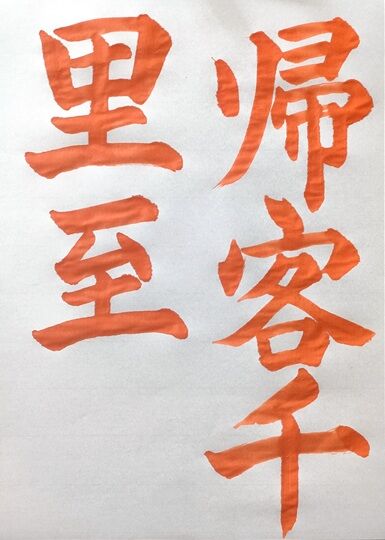 帰客千
里至